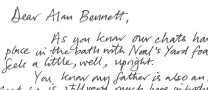 Dear Alan Bennett,
As you know our chats ha
place in the bath with Neal's Yard foa
feels a little, well, upright.
You know my father is also an